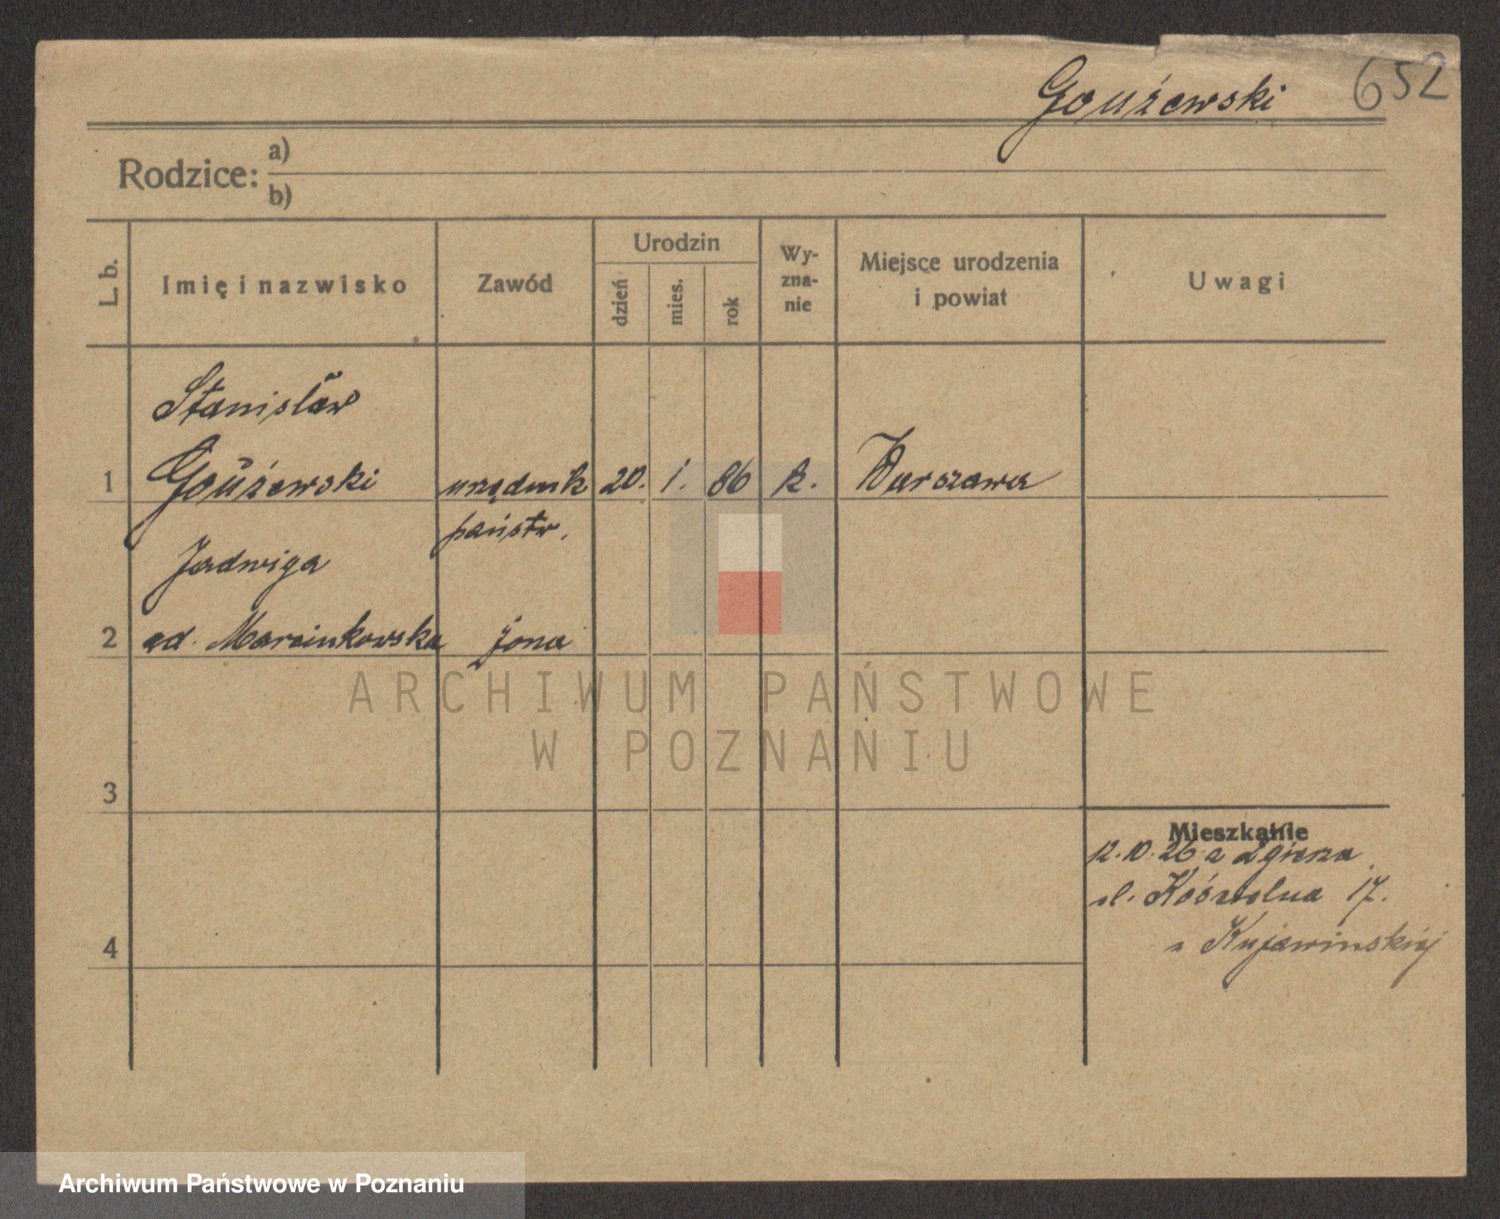 Goużewski 652
Rodzice: a)
b)
L. b. Imię i nazwisko Zawód Urodzin dzień mies. rok Wy-zna-nie Miejsce urodzenia i powiat Uwagi
Stanisław
1 Goużewski urzędnik 20. 1. 86 k. Warszawa
państw.
Jadwiga
2 Marcinkowska żona
ARCHIWUM PAŃSTWOWE
W POZNANIU
3
Mieszkanie
12.10.26 z Zgierza
ul. 17.
u Kujawińskiej
4
Archiwum Państwowe w Poznaniu